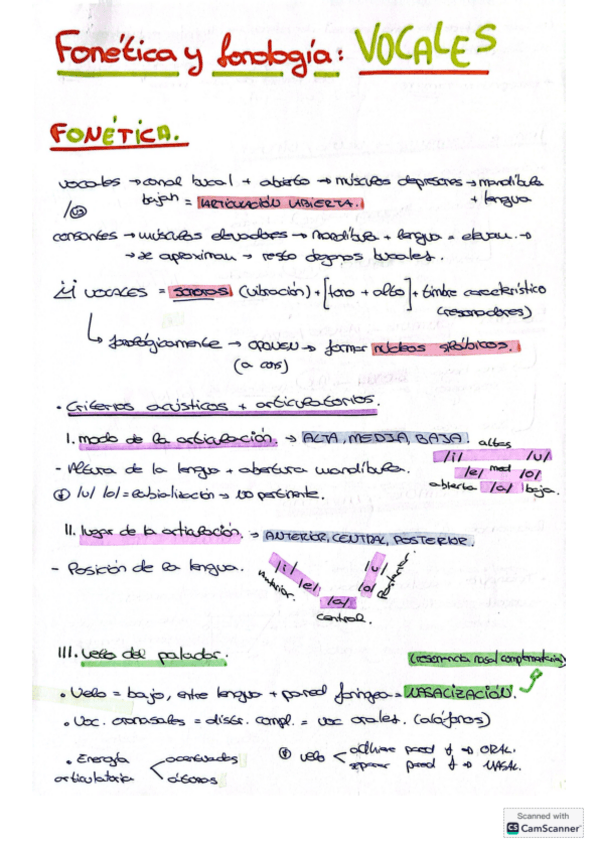 Fonética y fonología: VOCALES
FONÉTICA.
vocales → canal bucal + abierto → músculos depresores → mandíbula + lengua
bajan = ARTICULACIÓN ABIERTA.
consonantes → músculos elevadores → mandíbula + lengua = elevan. →
→ se aproximan → resto órganos bucales.
VOCALES = SONORAS (vibración) + [tono + alto] + timbre característico
(resonadores)
fonológicamente → OPONEN → formar núcleos silábicos.
(a cons)
· Criterios acústicos + articulatorios.
I. modo de la articulación. → ALTA, MEDIA, BAJA.
altas
/i/ /u/
/e/ med /o/
abierta /a/ baja.
- Altura de la lengua + abertura mandíbula.
/u/ /o/ = labialización → NO pertinente.
II. lugar de la articulación. → ANTERIOR, CENTRAL, POSTERIOR.
- Posición de la lengua.
/i/ /u/
/e/ /o/
/a/
Anterior. Posterior.
central.
III. velo del paladar.
(resonancia nasal complementaria)
· Velo = bajo, entre lengua + pared faríngea = NASALIZACIÓN.
· Voc. oronasales = distr. compl. = voc orales. (alófonos)
· Energía articulatoria
acentuadas
átonas
velo
pared → ORAL.
separar pared → NASAL.
Scanned with
CS CamScanner